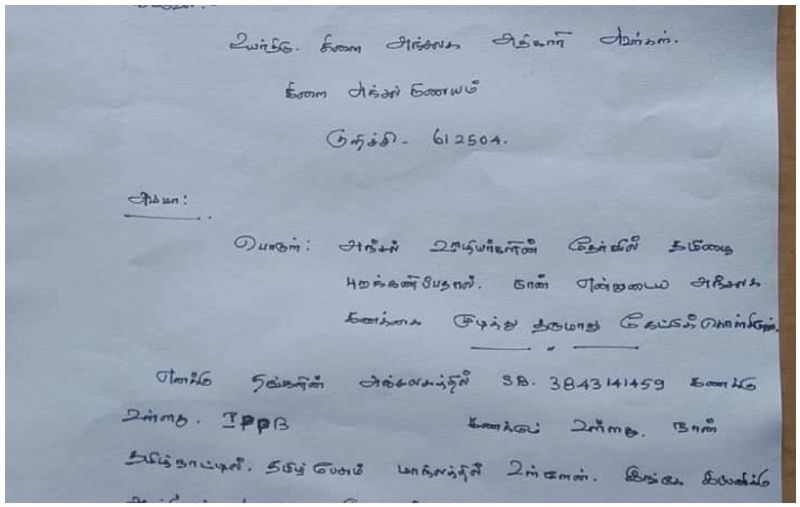 உயர்திரு. கிளை அஞ்சலக அதிகாரி அவர்கள்.
கிளை அஞ்சல் நிலையம்
குறிச்சி - 612504.
அம்மா:
பொருள்: அஞ்சல் ஊழியர்களின் தேர்வில் தமிழை
புறக்கணிப்பதால். நான் என்னுடைய அஞ்சலக
கணக்கை முடித்து தருமாறு கேட்டுக்கொள்கிறேன்.
எனக்கு தங்களின் அஞ்சலகத்தில் SB. 3843141459 கணக்கு
உள்ளது. IPPB கணக்கும் உள்ளது. நான்
தமிழ்நாட்டில். தமிழ் பேசும் மாநிலத்தில் உள்ளேன். இங்கு